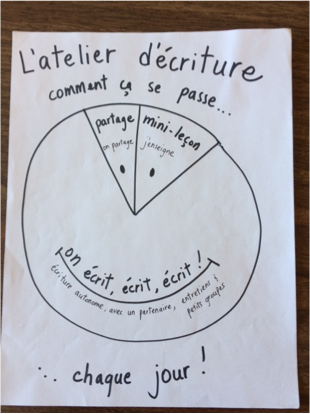 L'atelier d'écriture
comment ça se passe...
partage
on partage
mini-leçon
j'enseigne
on écrit, écrit, écrit !
écriture autonome, avec un partenaire, entretiens &
petits groupes
... chaque jour !